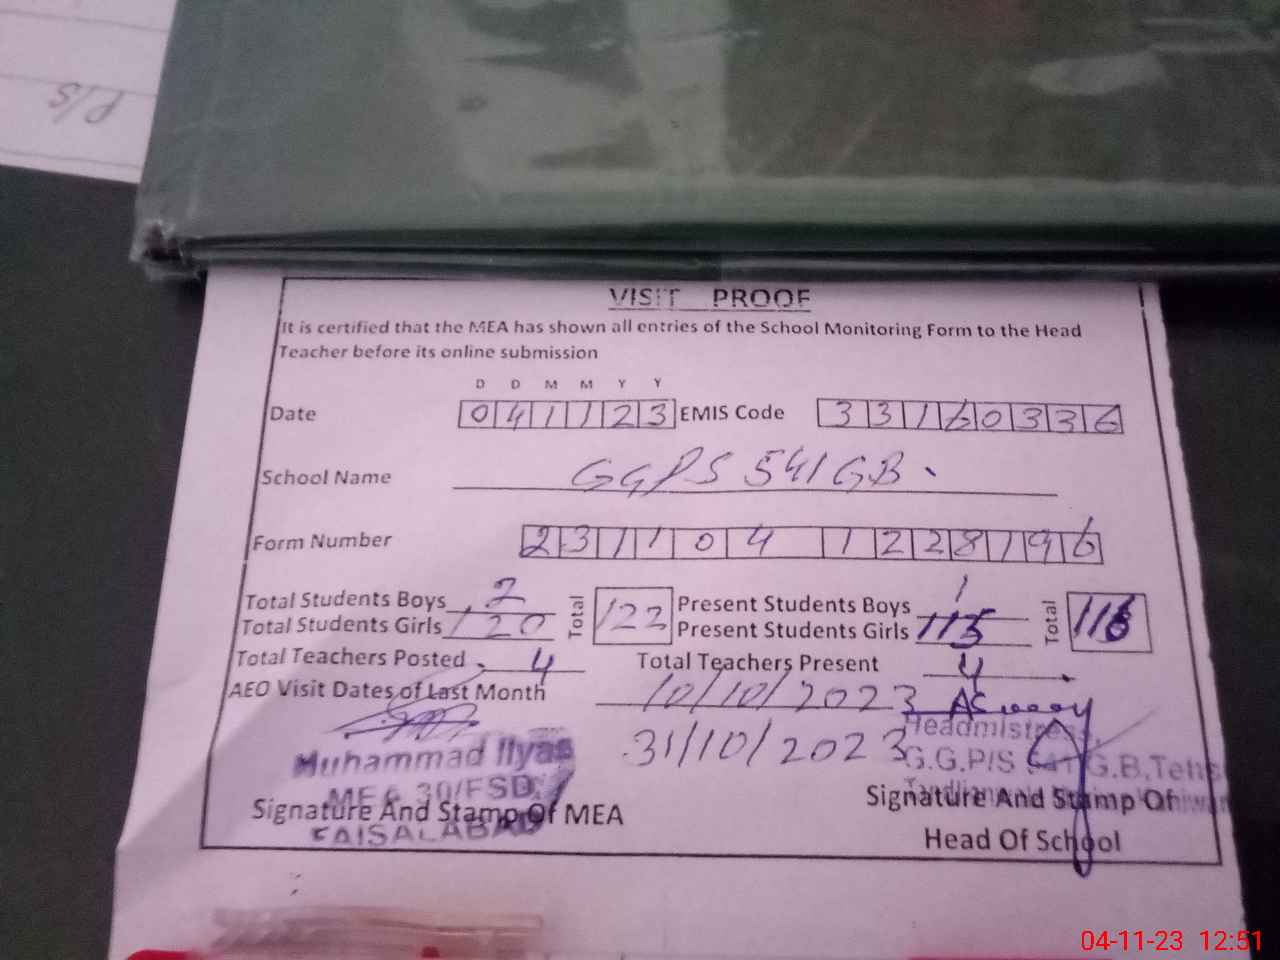 P/S
VISIT PROOF
It is certified that the MEA has shown all entries of the School Monitoring Form to the Head
Teacher before its online submission
D D M M Y Y
Date 0 4 1 1 2 3 EMIS Code 3 3 1 6 0 3 3 6
School Name GGPS 541 GB.
Form Number 2 3 1 1 0 4 1 2 2 8 1 9 6
Total Students Boys 2 Total 122 Present Students Boys 1 Total 116
Total Students Girls 120 Present Students Girls 115
Total Teachers Posted 4 Total Teachers Present 4
AEO Visit Dates of Last Month 10/10/2023
31/10/2023
Muhammad Ilyas
MEA 30/FSD.
FAISALABAD
Signature And Stamp Of MEA
Headmistress,
G.G.P/S 541 G.B, Tehs
Signature And Stamp Of
Head Of School
04-11-23 12:51